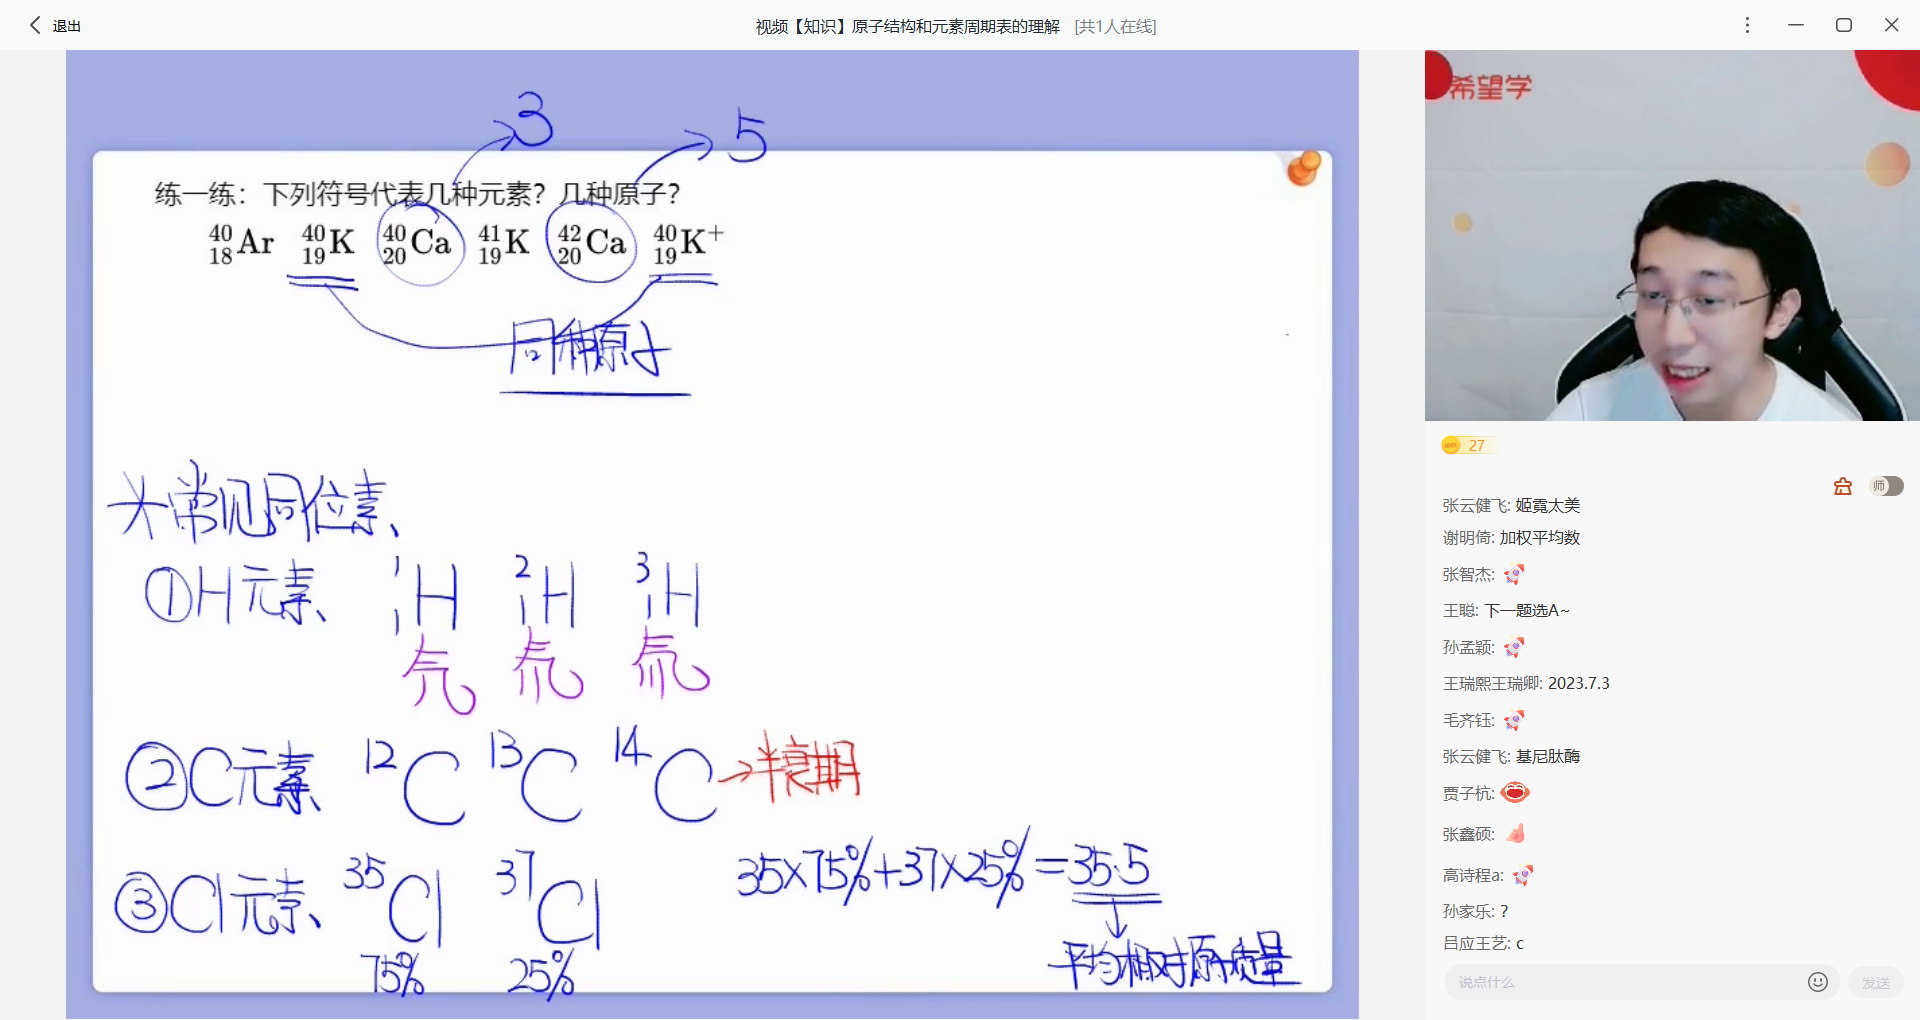 退出
视频【知识】原子结构和元素周期表的理解 [共1人在线]
3
5
练一练：下列符号代表几种元素？几种原子？
⁴⁰₁₈Ar ⁴⁰₁₉K ⁴⁰₂₀Ca ⁴¹₁₉K ⁴²₂₀Ca ⁴⁰₁₉K⁺
同种原子
常见同位素、
①H元素、 ¹₁H ²₁H ³₁H
氕 氘 氚
②C元素、 ¹²C ¹³C ¹⁴C→半衰期
③Cl元素、 ³⁵Cl ³⁷Cl 35×75%+37×25%=35.5
75% 25%
平均相对原子质量
希望学
27
师
张云健飞: 姬霓太美
谢明倚: 加权平均数
张智杰:
王聪: 下一题选A~
孙孟颖:
王瑞熙王瑞卿: 2023.7.3
毛齐钰:
张云健飞: 基尼肽酶
贾子杭:
张鑫硕:
高诗程a:
孙家乐: ?
吕应王艺: c
说点什么
发送